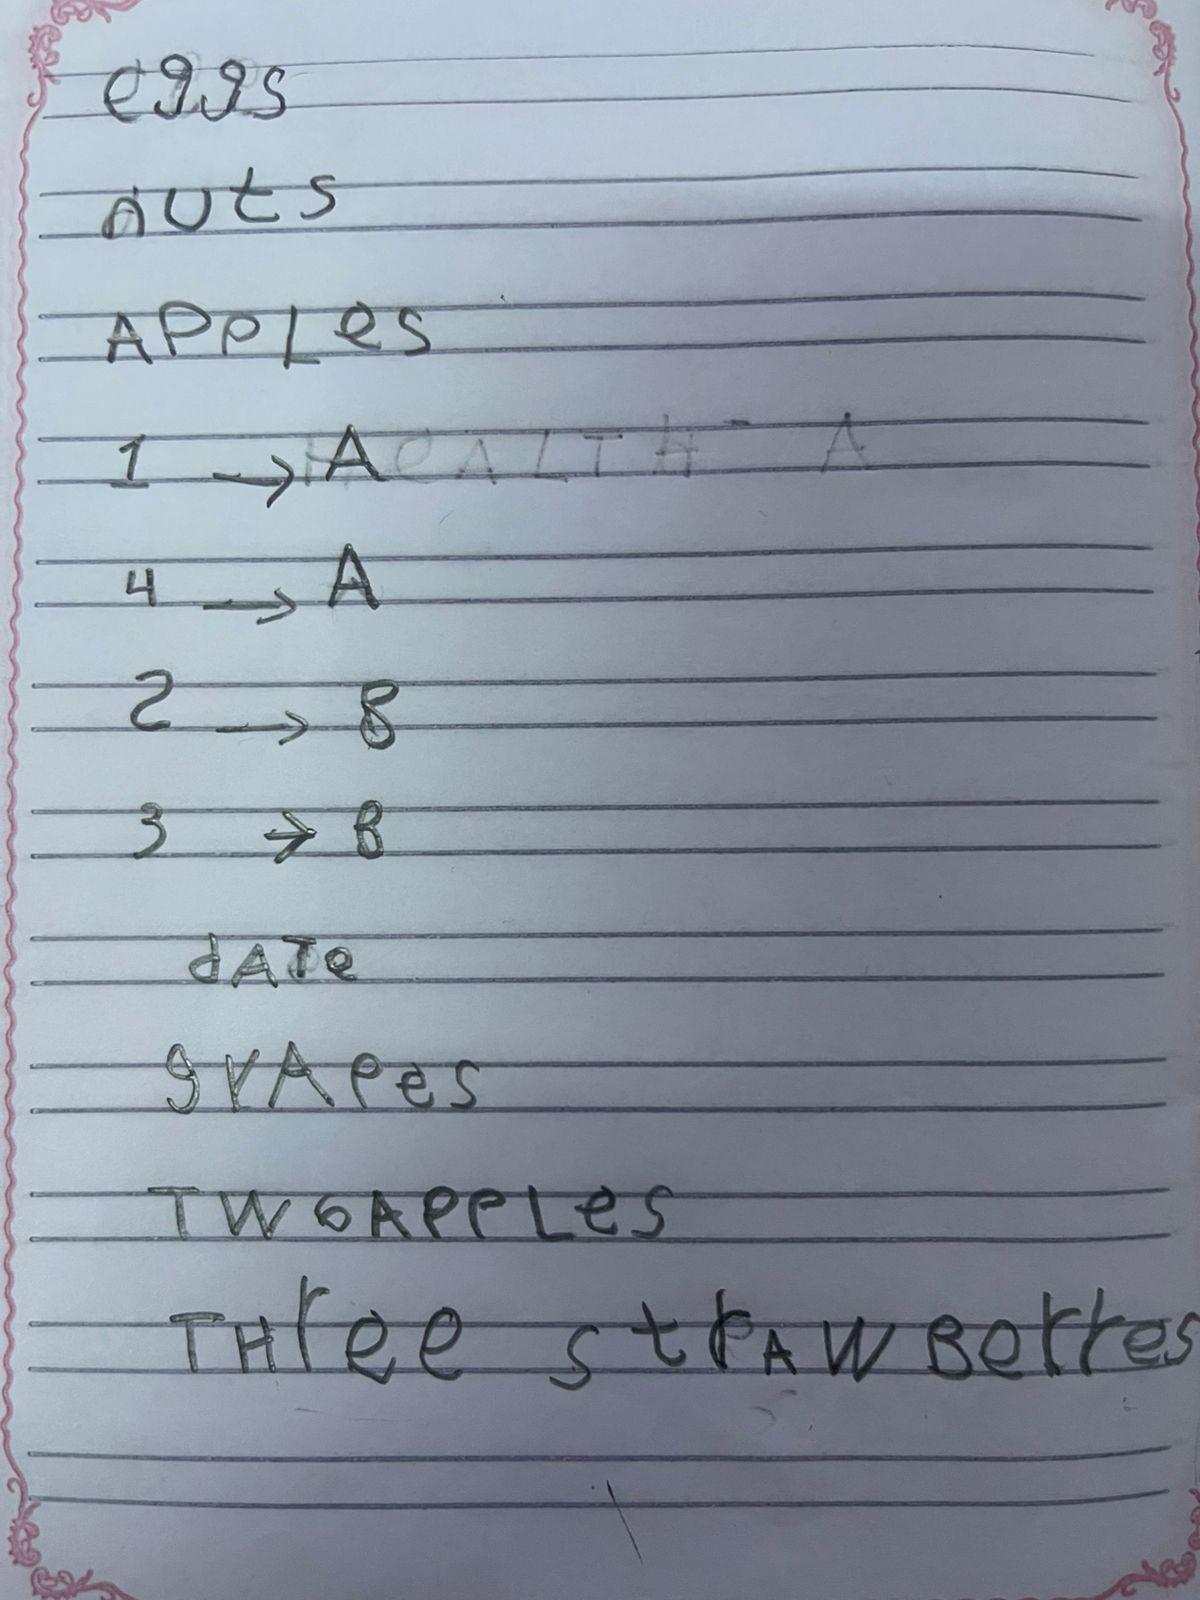 eggs
nuts
APPLes
1 → A HeALTH - A
4 → A
2 → B
3 → B
dATe
grApes
TWO APPLes
THree strAWBerres